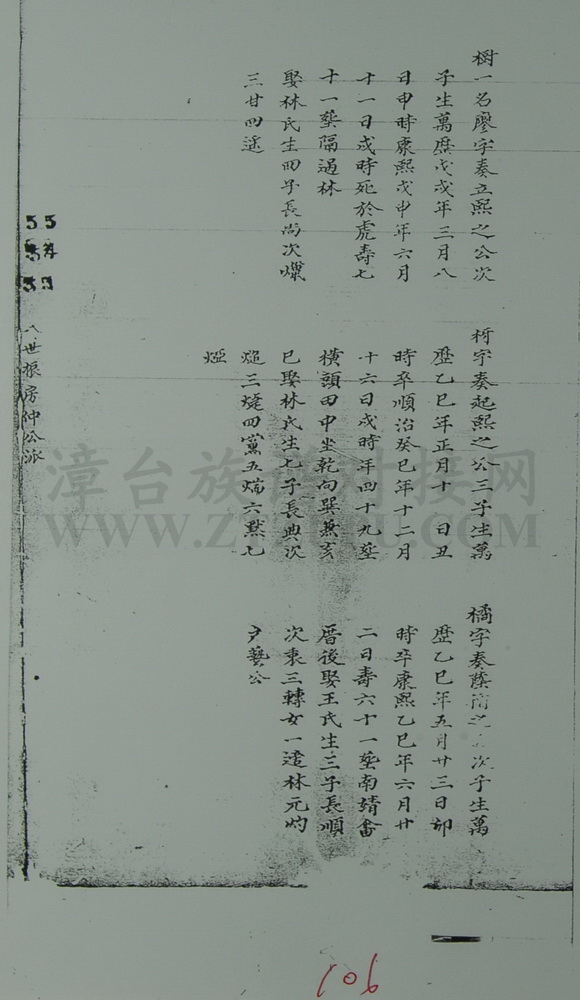 樹一名廖字奏立熙之公次
子生萬曆戊戌年三月八
日申時康熙戊申年六月
十一日戌時死於虎壽七
十一塟隔過林
娶林氏生四子長尚次爔
三廿四遥
柯字奏起熙之公三子生萬
歷乙巳年正月十日丑
時卒順治癸巳年十二月
十六日戌時年四十九塟
橫頭田申坐乾向巽兼亥
巳娶林氏生七子長典次
熎三烻四黨五煓六默七
烴
橘字奏蔭 之 次子生萬
歷乙巳年五月廿三日卯
時卒康熙乙巳年六月廿
二日壽六十一塟南靖畬
厝後娶王氏生三子長順
次衷三轉女一適林元灼
戶藝公
八世振房仲公派
漳台族谱对接网
WWW.ZTZUPU.COM
106